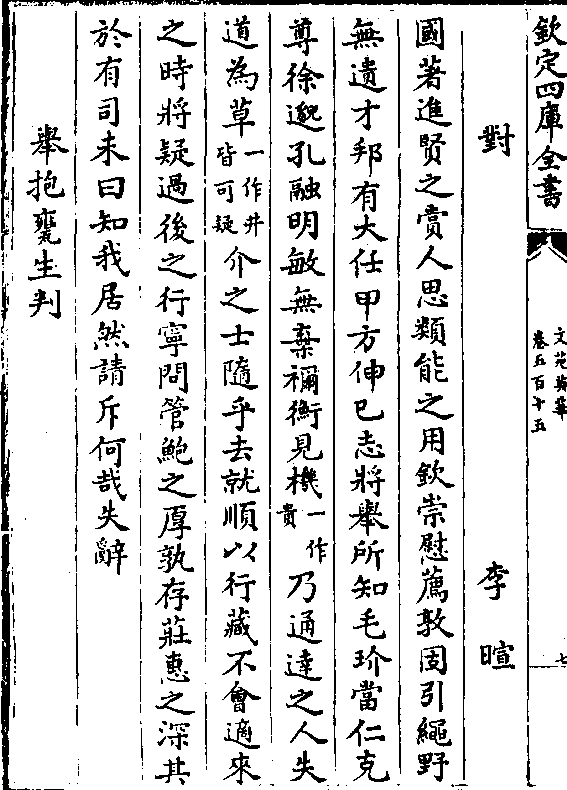 欽定四庫全書
文苑英華
卷五百十五
七
對 李暄
國著進賢之賞人思類能之用欽崇慰薦敦固引繩野
無遺才邦有大任甲方伸已志將舉所知毛玠當仁克
尊徐邈孔融明敏無棄禰衡見機一作貴乃通達之人失
道為草一作井皆可疑介之士隨乎去就順以行藏不會適來
之時將疑過後之行寧問管鮑之厚孰存莊惠之深其
於有司未曰知我居然請斥何哉失辭
舉抱甕生判